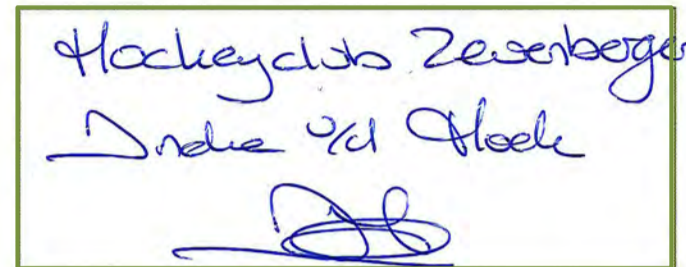 Hockeyclub Zevenbergen
Ineke v/d Hoek